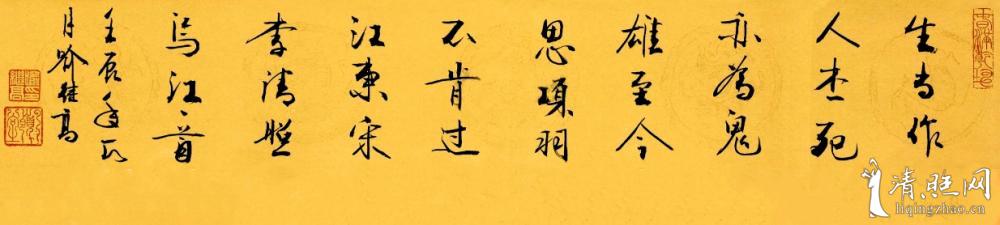 生当作
人杰死
亦為鬼
雄至今
思項羽
不肯过
江東宋
李清照
烏江首
壬辰年
月喻继高
清照网
liqingzhao.cn